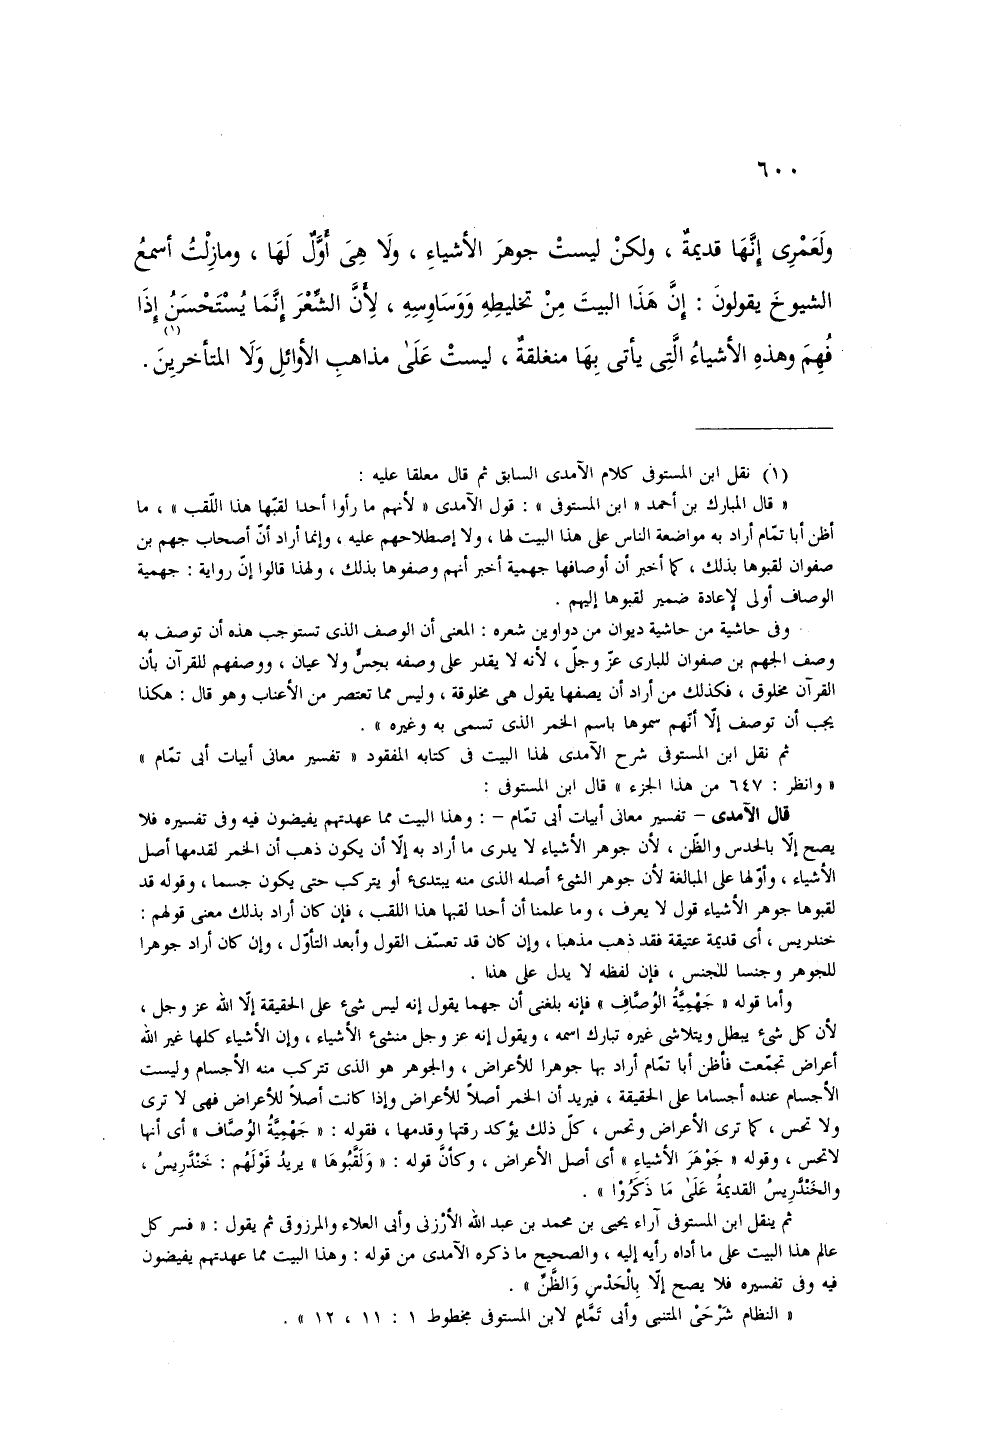 ٦٠٠
ولَعَمْرِى إِنَّهَا قديمةٌ ، ولكنْ ليستْ جوهرَ الأشياءِ ، ولَا هِىَ أَوَّلٌ لَهَا ، ومازِلْتُ أسمعُ
الشيوخَ يقولونَ : إِنَّ هَذَا البيتَ مِنْ تخليطِهِ وَوَسَاوِسِهِ ، لِأَنَّ الشِّعْرَ إِنَّمَا يُسْتَحْسَنُ إِذَا
فُهِمَ وهذهِ الأشياءُ الَّتِى يأتى بِهَا منغلقةٌ ، ليستْ عَلَىٰ مذاهبِ الأوائلِ وَلَا المتأخرينَ(١) .
(١) نقل ابن المستوفى كلام الآمدى السابق ثم قال معلقا عليه :
« قال المبارك بن أحمد « ابن المستوفى » : قول الآمدى « لأنهم ما رأوا أحدا لقبّها هذا اللّقب » ، ما
أظن أبا تمّام أراد به مواضعة الناس على هذا البيت لها ، ولا إصطلاحهم عليه ، وإنما أراد أنّ أصحاب جهم بن
صفوان لقبوها بذلك ، كما أخبر أن أوصافها جهمية أخبر أنهم وصفوها بذلك ، ولهذا قالوا إنّ رواية : جهمية
الوصاف أولى لإعادة ضمير لقبوها إليهم .
وفى حاشية من حاشية ديوان من دواوين شعره : المعنى أن الوصف الذى تستوجب هذه أن توصف به
وصف الجهم بن صفوان للبارى عزّ وجلّ ، لأنه لا يقدر على وصفه بحِسٍّ ولا عيان ، ووصفهم للقرآن بأن
القرآن مخلوق ، فكذلك من أراد أن يصفها يقول هى مخلوقة ، وليس مما تعتصر من الأعناب وهو قال : هكذا
يجب أن توصف إلّا أنّهم سموها باسم الخمر الذى تسمى به وغيره » .
ثم نقل ابن المستوفى شرح الآمدى لهذا البيت فى كتابه المفقود « تفسير معانى أبيات أبى تمّام »
« وانظر : ٦٤٧ من هذا الجزء » قال ابن المستوفى :
قال الآمدى – تفسير معانى أبيات أبى تمّام – : وهذا البيت مما عهدتهم يفيضون فيه وفى تفسيره فلا
يصح إلّا بالحدس والظّن ، لأن جوهر الأشياء لا يدرى ما أراد به إلّا أن يكون ذهب أن الخمر لقدمها أصل
الأشياء ، وأوّلها على المبالغة لأن جوهر الشئ أصله الذى منه يبتدئ أو يتركب حتى يكون جسما ، وقوله قد
لقبوها جوهر الأشياء قول لا يعرف ، وما علمنا أن أحدا لقبها هذا اللقب ، فإن كان أراد بذلك معنى قولهم :
خندريس ، أى قديمة عتيقة فقد ذهب مذهبا ، وإن كان قد تعسّف القول وأبعد التأوّل ، وإن كان أراد جوهرا
للجوهر وجنسا للجنس ، فإن لفظه لا يدل على هذا .
وأما قوله « جَهْمِيَّةُ الوُصَّافِ » فإنه بلغنى أن جهما يقول إنه ليس شئ على الحقيقة إلّا الله عز وجل ،
لأن كل شئ يبطل ويتلاشى غيره تبارك اسمه ، ويقول إنه عز وجل منشئ الأشياء ، وإن الأشياء كلها غير الله
أعراض تجمّعت فأظن أبا تمّام أراد بها جوهرا للأعراض ، والجوهر هو الذى تتركب منه الأجسام وليست
الأجسام عنده أجساما على الحقيقة ، فيريد أن الخمر أصلاً للأعراض وإذا كانت أصلاً للأعراض فهى لا ترى
ولا تحس ، كما ترى الأعراض وتحس ، كلّ ذلك يؤكد رقتها وقدمها ، فقوله : « جَهْمِيَّةُ الوُصَّاف » أى أنها
لاتحس ، وقوله « جَوْهَرَ الأشياءِ » أى أصل الأعراض ، وكأنَّ قوله : « وَلَقَّبُوهَا » يريدُ قَوْلَهُم : خَنْدَرِيسُ ،
والخَنْدَرِيسُ القديمةُ عَلَىٰ مَا ذَكَرُوْا » .
ثم ينقل ابن المستوفى آراء يحيى بن محمد بن عبد الله الأرْزنى وأبى العلاء والمرزوقى ثم يقول : « فسر كل
عالم هذا البيت على ما أداه رأيه إليه ، والصحيح ما ذكره الآمدى من قوله : وهذا البيت مما عهدتهم يفيضون
فيه وفى تفسيره فلا يصح إلّا بِالْحَدْسِ وَالظَّنِّ » .
« النظام شَرْحَىْ المتنبى وأبى تَمَّامٍ لابن المستوفى مخطوط ١ : ١١ ، ١٢ » .